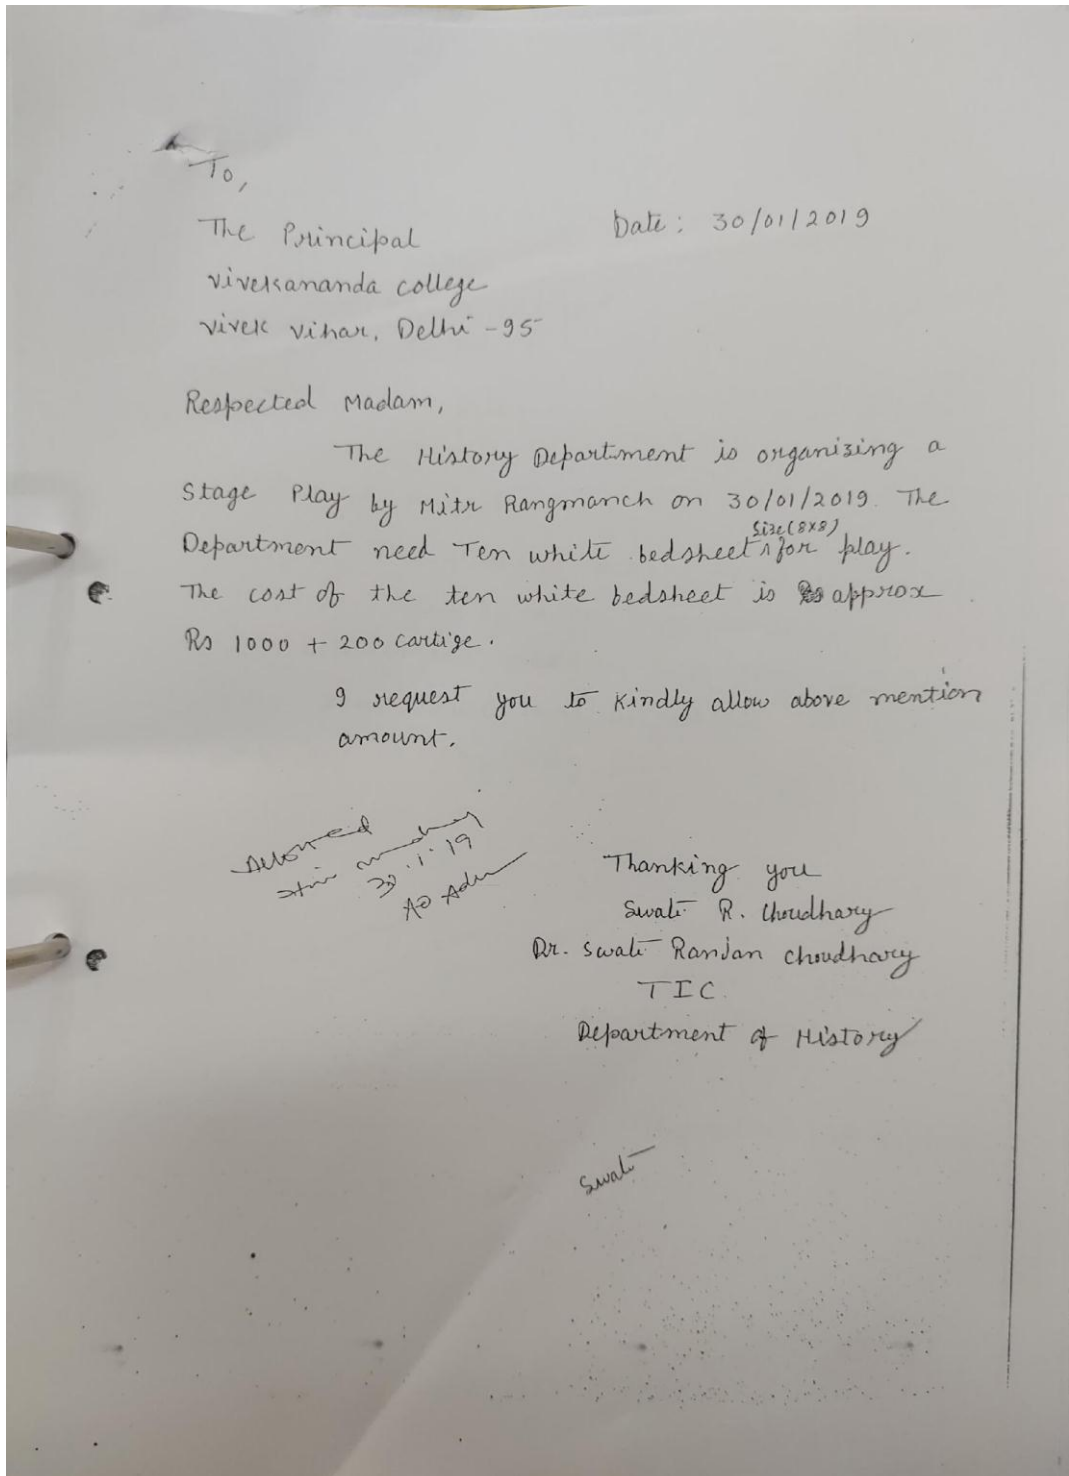 To,
The Principal
Date: 30/01/2019
Vivekananda college
Vivek Vihar, Delhi-95
Respected Madam,
The History Department is organizing a
Stage Play by Mitr Rangmanch on 30/01/2019. The
Size(8x8)
Department need Ten white bedsheet for play.
The cost of the ten white bedsheet is approx
Rs 1000 + 200 cartige.
I request you to kindly allow above mention
amount.
Allowed
30.1.19
AO Adm
Thanking you
Swati R. Choudhary
Dr. Swati Ranjan Choudhary
TIC
Department of History
Swati